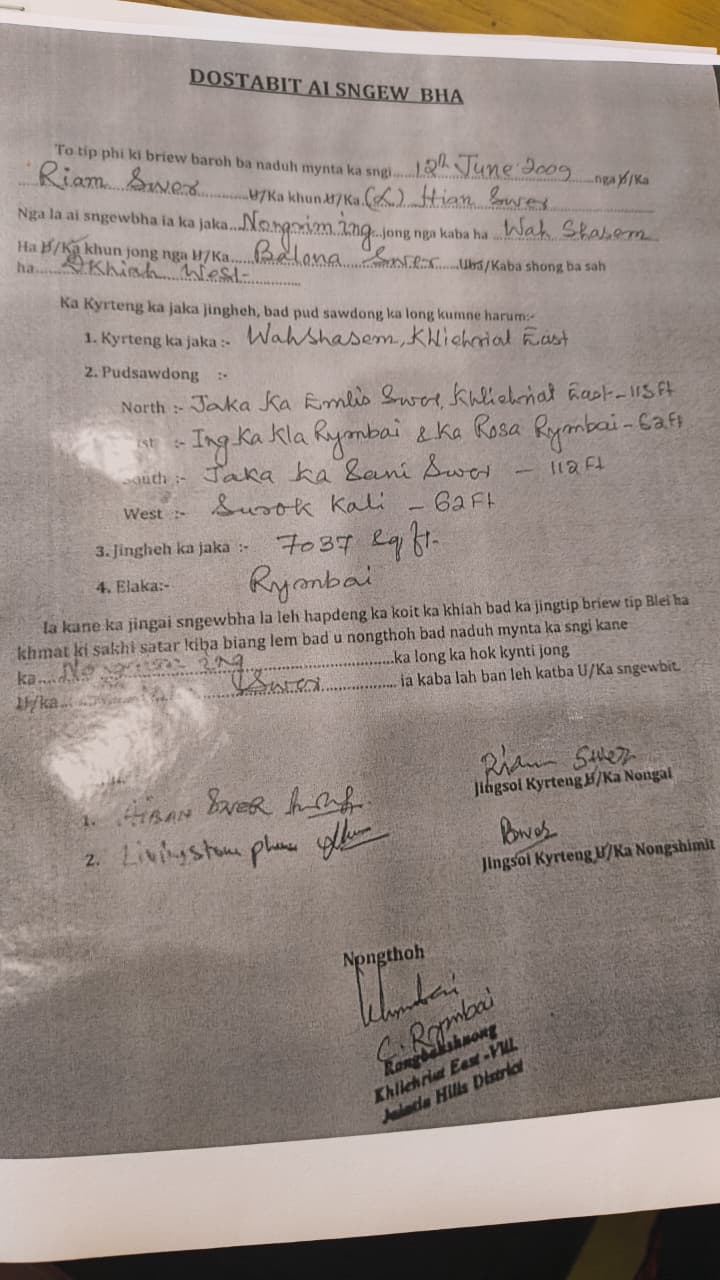 DOSTABIT AI SNGEW BHA
To tip phi ki briew baroh ba naduh mynta ka sngi.....12th June 2009.....nga U/Ka
Riam Swer...........U/Ka khun U/Ka.(L) Hian Swer
Nga la ai sngewbha ia ka jaka..Nongrim ing..jong nga kaba ha ...Wah Shasem
Ha U/Ka khun jong nga U/Ka.....Balona Swer....Uba/Kaba shong ba sah
ha......Khiah West-............
Ka Kyrteng ka jaka jingheh, bad pud sawdong ka long kumne harum:-
1. Kyrteng ka jaka :- Wahshasem, Khliehriat East
2. Pudsawdong :-
North :- Jaka Ka Emlis Swer, Khliehriat East - 115 Ft
st :- Ing Ka Kla Rymbai & Ka Rosa Rymbai - 62 Ft
South :- Jaka Ka Sani Swer - 112 Ft
West :- Surok Kali - 62 Ft
3. Jingheh ka jaka :- 7037 Sq ft.
4. Elaka:- Rymbai
Ia kane ka jingai sngewbha la leh hapdeng ka koit ka khiah bad ka jingtip briew tip Blei ha
khmat ki sakhi satar kiba biang lem bad u nongthoh bad naduh mynta ka sngi kane
ka.... ing..............................ka long ka hok kynti jong
U/ka... Swer................. ia kaba lah ban leh katba U/Ka sngewbit.
Riam Swer
Jingsoi Kyrteng U/Ka Nongai
1. AIBAN SWER
2. Livingstone
Jingsoi Kyrteng U/Ka Nongshimti
Nongthoh
C. Rymbai
Rangbahshnong
Khliehriat East -Vill.
Jaintia Hills District